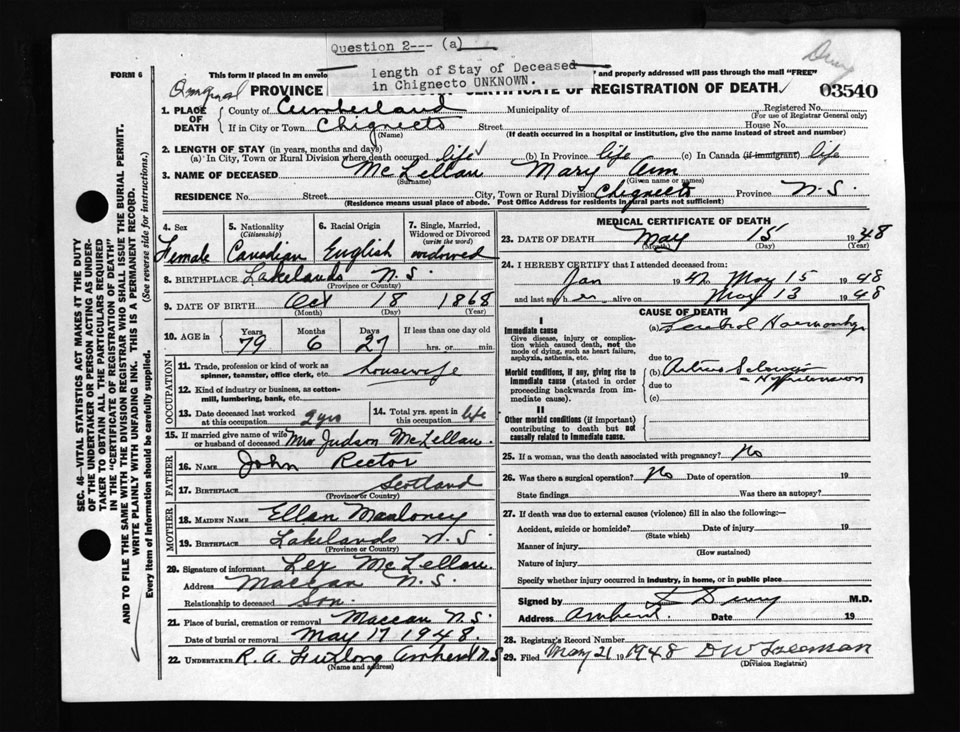 Question 2--- (a)
length of Stay of Deceased
in Chignecto UNKNOWN.
FORM 6
This form if placed in an envelo ' and properly addressed will pass through the mail "FREE"
PROVINCE CERTIFICATE OF REGISTRATION OF DEATH
03540
1. PLACE OF DEATH
County of Cumberland Municipality of Registered No.
(For use of Registrar General only)
If in City or Town Chignecto Street House No.
(Name) (If death occurred in a hospital or institution, give the name instead of street and number)
2. LENGTH OF STAY (in years, months and days)
(a) In City, Town or Rural Division where death occured life (b) In Province life (c) In Canada (if immigrant) life
3. NAME OF DECEASED McLellan Mary Ann
(Surname) (Given name or names)
RESIDENCE No. Street City, Town or Rural Division Chignecto Province N.S.
(Residence means usual place of abode. Post Office Address for residents in rural parts not sufficient)
SEC. 46—VITAL STATISTICS ACT MAKES AT THE DUTY
OF THE UNDERTAKER OR PERSON ACTING AS UNDER-
TAKER TO OBTAIN ALL THE PARTICULARS REQUIRED
IN THE "CERTIFICATE OF REGISTRATION OF DEATH"
AND TO FILE THE SAME WITH THE DIVISION REGISTRAR WHO SHALL ISSUE THE BURIAL PERMIT.
WRITE PLAINLY WITH UNFADING INK. THIS IS A PERMANENT RECORD.
Every item of information should be carefully supplied. (See reverse side for instructions.)
4. Sex
Female
5. Nationality
(Citizenship)
Canadian
6. Racial Origin
English
7. Single, Married,
Widowed or Divorced
(write the word)
widowed
8. BIRTHPLACE Lakelands N.S.
(Province or Country)
9. DATE OF BIRTH Oct 18 1868
(Month) (Day) (Year)
10. AGE in Years Months Days If less than one day old
79 6 27 hrs. or min.
OCCUPATION
11. Trade, profession or kind of work as
spinner, teamster, office clerk, etc. housewife
12. Kind of industry or business, as cotton-
mill, lumbering, bank, etc.
13. Date deceased last worked
at this occupation 2 yrs
14. Total yrs. spent in
this occupation life
15. If married give name of wife
or husband of deceased Mrs Judson McLellan.
FATHER
16. NAME John Rector
17. BIRTHPLACE Scotland
(Province or Country)
MOTHER
18. MAIDEN NAME Ellan Maaloney
19. BIRTHPLACE Lakelands N.S.
(Province or Country)
20. Signature of informant Lex McLellan.
Address Maccan N.S.
Relationship to deceased Son.
21. Place of burial, cremation or removal Maccan N.S.
Date of burial or removal May 17 1948.
22. UNDERTAKER R. A. Furlong Amherst N.S
(Name and address)
MEDICAL CERTIFICATE OF DEATH
23. DATE OF DEATH May 15 1948
(Month) (Day) (Year)
24. I HEREBY CERTIFY that I attended deceased from:
Jan 1947 May 15 1948
and last say her alive on May 13 1948
CAUSE OF DEATH
I
Immediate cause
Give disease, injury or complica-
tion which caused death, not the
mode of dying, such as heart failure,
asphyxia, asthenia, etc.
(a) Cerebral Haemorrhage
due to
Morbid conditions, if any, giving rise to
immediate cause (stated in order
proceeding backwards from im-
mediate cause).
(b) Arterio Sclerosis
due to Hypertension
(c)
II
Other morbid conditions (if important)
contributing to death but not
causally related to Immediate cause.
25. If a woman, was the death associated with pregnancy? No
26. Was there a surgical operation? No Date of operation 19
State findings Was there an autopsy?
27. If death was due to external causes (violence) fill in also the following:—
Accident, suicide or homicide? Date of injury 19
(State which)
Manner of injury
(How sustained)
Nature of injury
Specify whether injury occurred in industry, in home, or in public place
Signed by M.D.
Address Amherst. Date 19
28. Registrar's Record Number
29. Filed May 21 1948 D W Freeman
(Division Registrar)